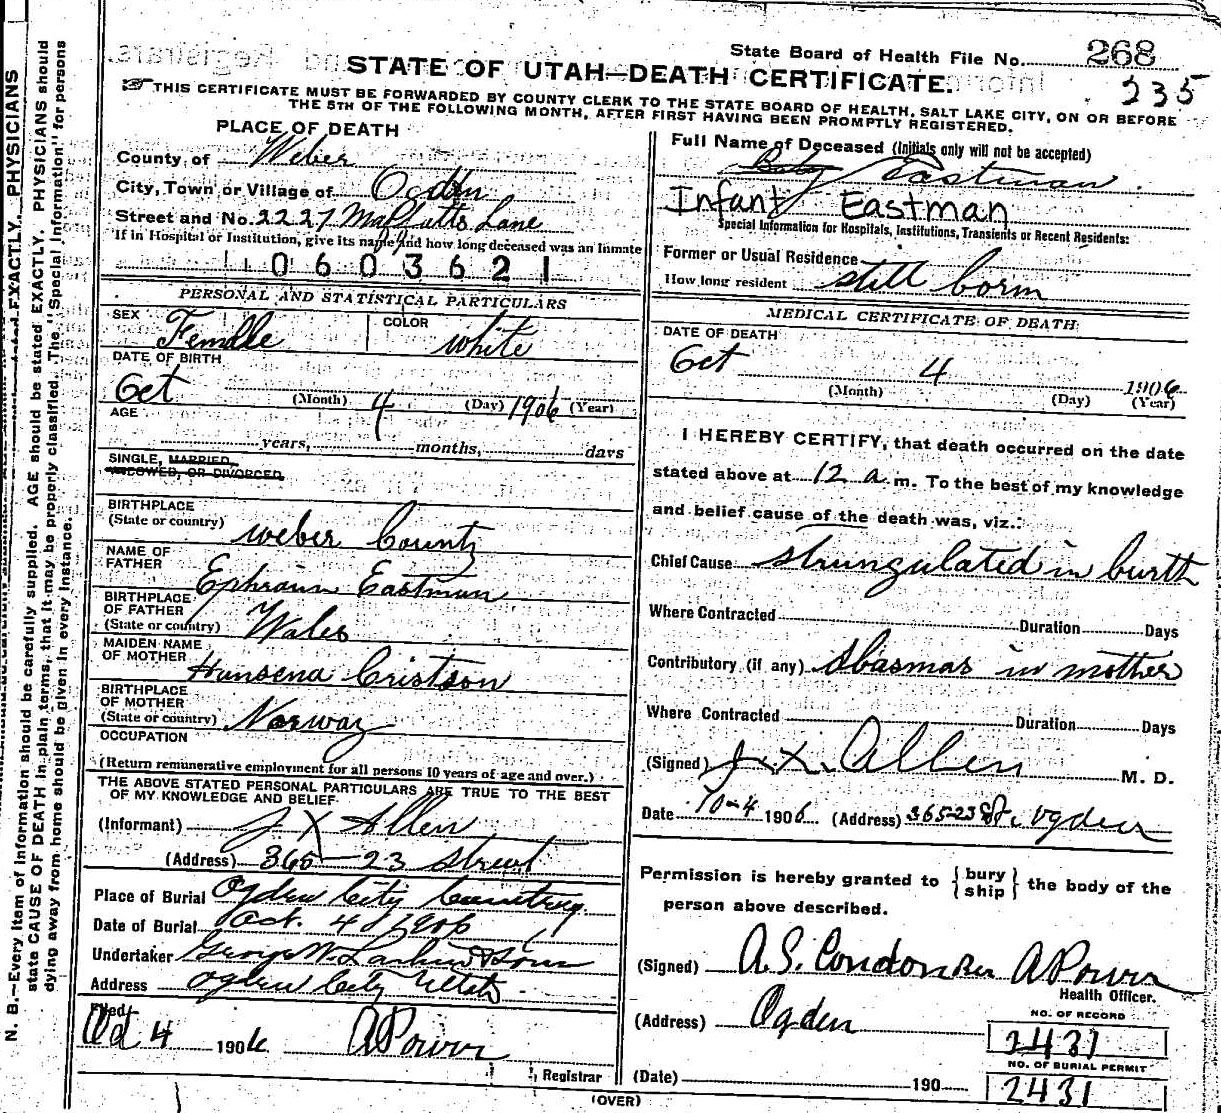 State Board of Health File No. 268
235
STATE OF UTAH—DEATH CERTIFICATE.
THIS CERTIFICATE MUST BE FORWARDED BY COUNTY CLERK TO THE STATE BOARD OF HEALTH, SALT LAKE CITY, ON OR BEFORE
THE 5TH OF THE FOLLOWING MONTH, AFTER FIRST HAVING BEEN PROMPTLY REGISTERED.
PLACE OF DEATH
County of Weber
City, Town or Village of Ogden
Street and No. 2227 Lane
If in Hospital or Institution, give its name and how long deceased was an Inmate
0603621
PERSONAL AND STATISTICAL PARTICULARS
SEX Female COLOR white
DATE OF BIRTH
Oct (Month) 4 (Day) 1906 (Year)
AGE
years, months, days
SINGLE, MARRIED,
WIDOWED, OR DIVORCED
BIRTHPLACE
(State or country) Weber County
NAME OF
FATHER Ephraim Eastman
BIRTHPLACE
OF FATHER
(State or country) Wales
MAIDEN NAME
OF MOTHER Hansena Cristson
BIRTHPLACE
OF MOTHER
(State or country) Norway
OCCUPATION
(Return remunerative employment for all persons 10 years of age and over.)
THE ABOVE STATED PERSONAL PARTICULARS ARE TRUE TO THE BEST
OF MY KNOWLEDGE AND BELIEF.
(Informant) J X Allen
(Address) 365–23 street
Place of Burial Ogden City Cemetery
Date of Burial Oct. 4 1906
Undertaker George W. Larkin & Sons
Address Ogden City Utah
Filed
Oct 4 1906 A Power
Registrar
Full Name of Deceased (Initials only will not be accepted)
Baby Eastman.
Infant Eastman
Special Information for Hospitals, Institutions, Transients or Recent Residents:
Former or Usual Residence
How long resident still born
MEDICAL CERTIFICATE OF DEATH
DATE OF DEATH
Oct 4 1906
(Month) (Day) (Year)
I HEREBY CERTIFY, that death occurred on the date
stated above at 12 a.m. To the best of my knowledge
and belief cause of the death was, viz.:
Chief Cause strungulated in burth
Where Contracted Duration Days
Contributory (if any) sbasmas in mother
Where Contracted Duration Days
(Signed) J. X. Allen M. D.
Date 10-4 1906 (Address) 365-23 St. Ogden
Permission is hereby granted to { bury
ship } the body of the
person above described.
(Signed) A. S. Condon per A Power
Health Officer.
(Address) Ogden
NO. OF RECORD
2431
NO. OF BURIAL PERMIT
2431
(Date) 190
(OVER)
N. B.—Every item of information should be carefully supplied. AGE should be stated EXACTLY. PHYSICIANS should
state CAUSE OF DEATH in plain terms, that it may be properly classified. The "Special Information" for persons
dying away from home should be given in every instance.